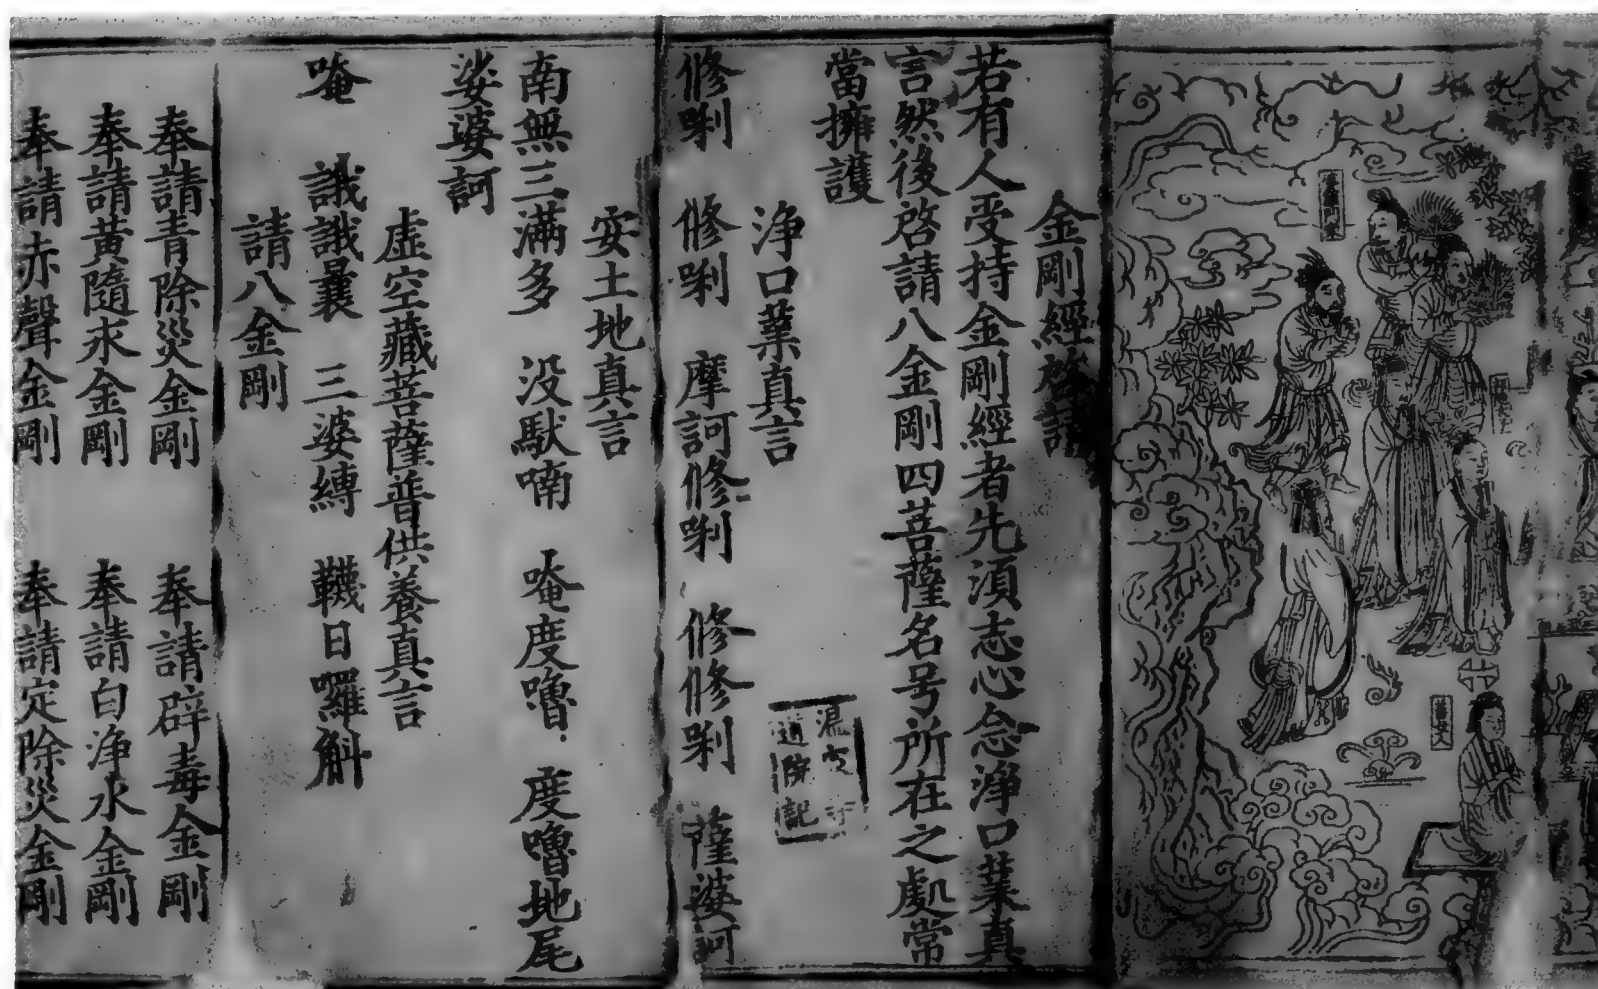 金剛經啓請
若有人受持金剛經者先湏志心念淨口業真
言然後啓請八金剛四菩薩名号所在之處常
當擁護
淨口業真言
修唎 修唎 摩訶修唎 修修唎 薩婆訶
安土地真言
南無三滿多 没馱喃 唵度嚕 度嚕地尾
娑婆訶
虛空藏菩薩普供養真言
唵 誐誐曩 三婆縛 韈日囉斛
請八金剛
奉請青除災金剛 奉請辟毒金剛
奉請黃隨求金剛 奉請白淨水金剛
奉請赤聲金剛 奉請定除災金剛